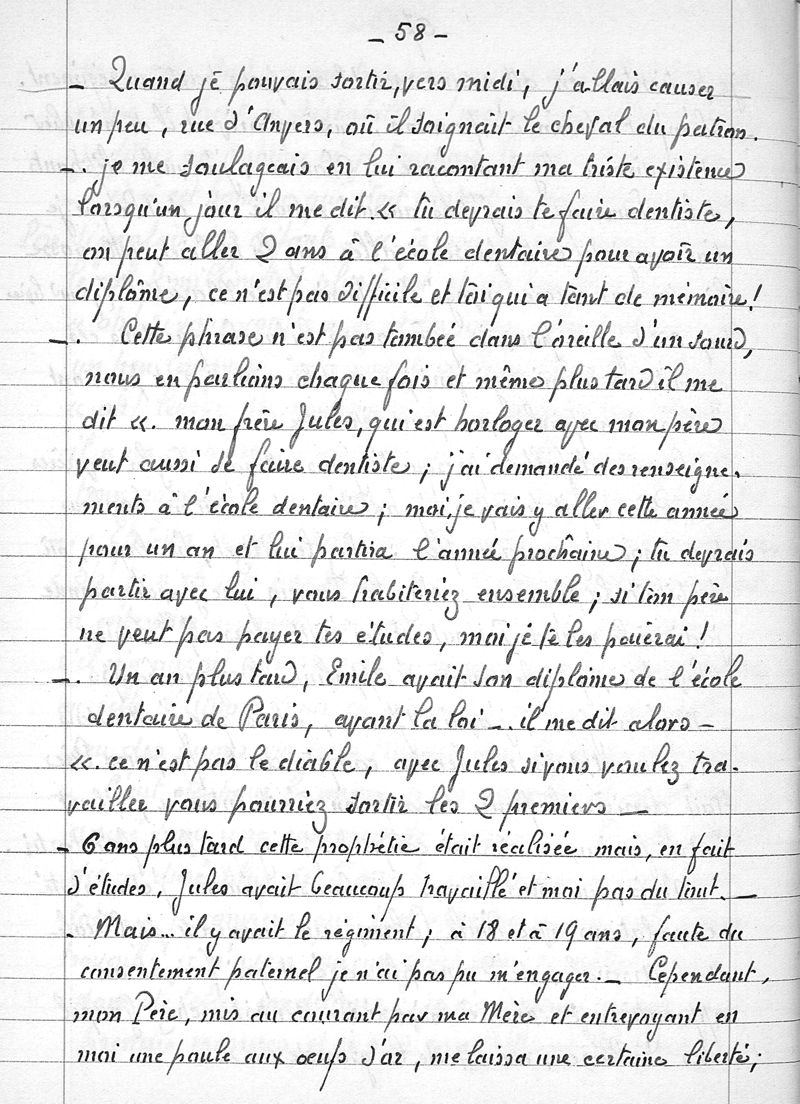 – 58 –
– Quand je pouvais sortir, vers midi, j'allais causer
un peu, rue d'Anvers, où il soignait le cheval du patron.
–. je me soulageais en lui racontant ma triste existence
lorsqu'un jour il me dit. « tu devrais te faire dentiste,
on peut aller 2 ans à l'école dentaire pour avoir un
diplôme, ce n'est pas difficile et toi qui a tant de mémoire!
–. Cette phrase n'est pas tombée dans l'oreille d'un sourd,
nous en parlions chaque fois et même plus tard il me
dit «. mon frère Jules, qui est horloger avec mon père
veut aussi se faire dentiste; j'ai demandé des renseigne-
ments à l'école dentaire; moi je vais y aller cette année
pour un an et lui partira l'année prochaine; tu devrais
partir avec lui, vous habiteriez ensemble; si ton père
ne veut pas payer tes études, moi je te les paierai!
–. Un an plus tard, Emile avait son diplome de l'école
dentaire de Paris, avant la loi –. il me dit alors –
«. ce n'est pas le diable, avec Jules si vous voulez tra-
vailler vous pourriez sortir les 2 premiers –
– 6 ans plus tard cette prophétie était réalisée mais, en fait
d'études, Jules avait beaucoup travaillé et moi pas du tout. –
. Mais... il y avait le régiment; à 18 et à 19 ans, faute du
consentement paternel je n'ai pas pu m'engager. – Cependant,
mon Père, mis au courant par ma Mère et entrevoyant en
moi une poule aux oeufs d'or, me laissa une certaine liberté;